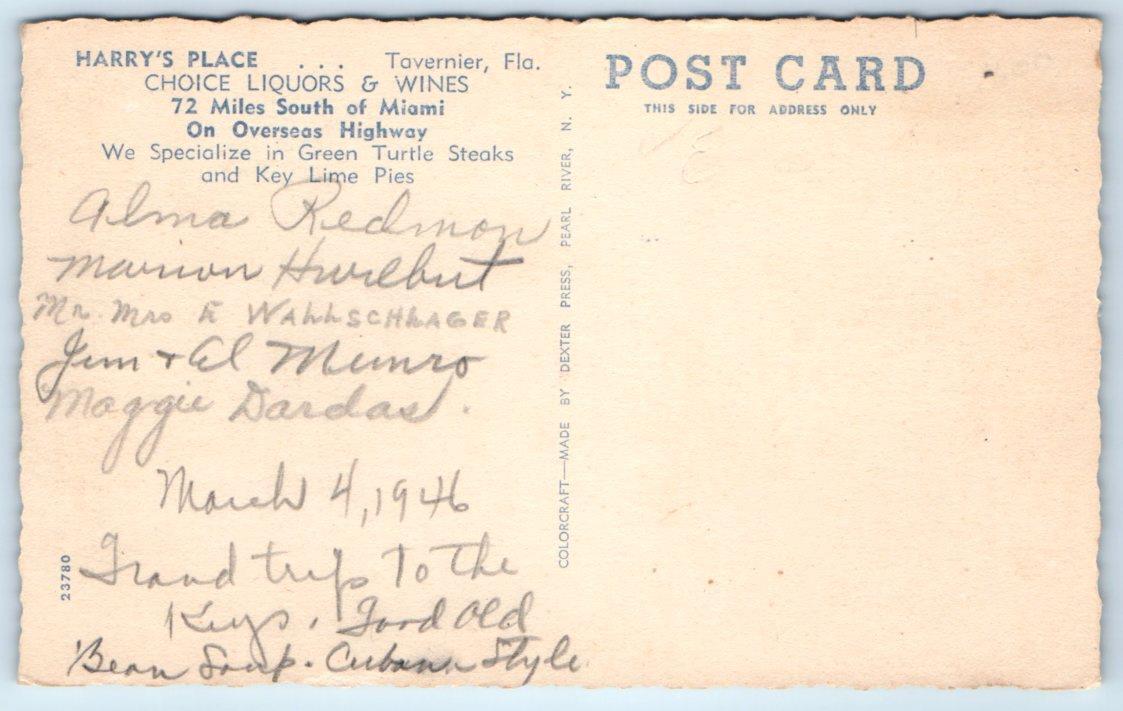 HARRY'S PLACE . . . Tavernier, Fla.
CHOICE LIQUORS & WINES
72 Miles South of Miami
On Overseas Highway
We Specialize in Green Turtle Steaks
and Key Lime Pies
Alma Redmon
Marion Hurlbut
Mr. Mrs E WALLSCHLAGER
Jim + El Munro
Maggie Dardas.
March 4, 1946
Grand trip to the
Keys. Good Old
Bean Soup. Cuban Style
23780
COLORCRAFT—MADE BY DEXTER PRESS, PEARL RIVER, N. Y.
POST CARD
THIS SIDE FOR ADDRESS ONLY